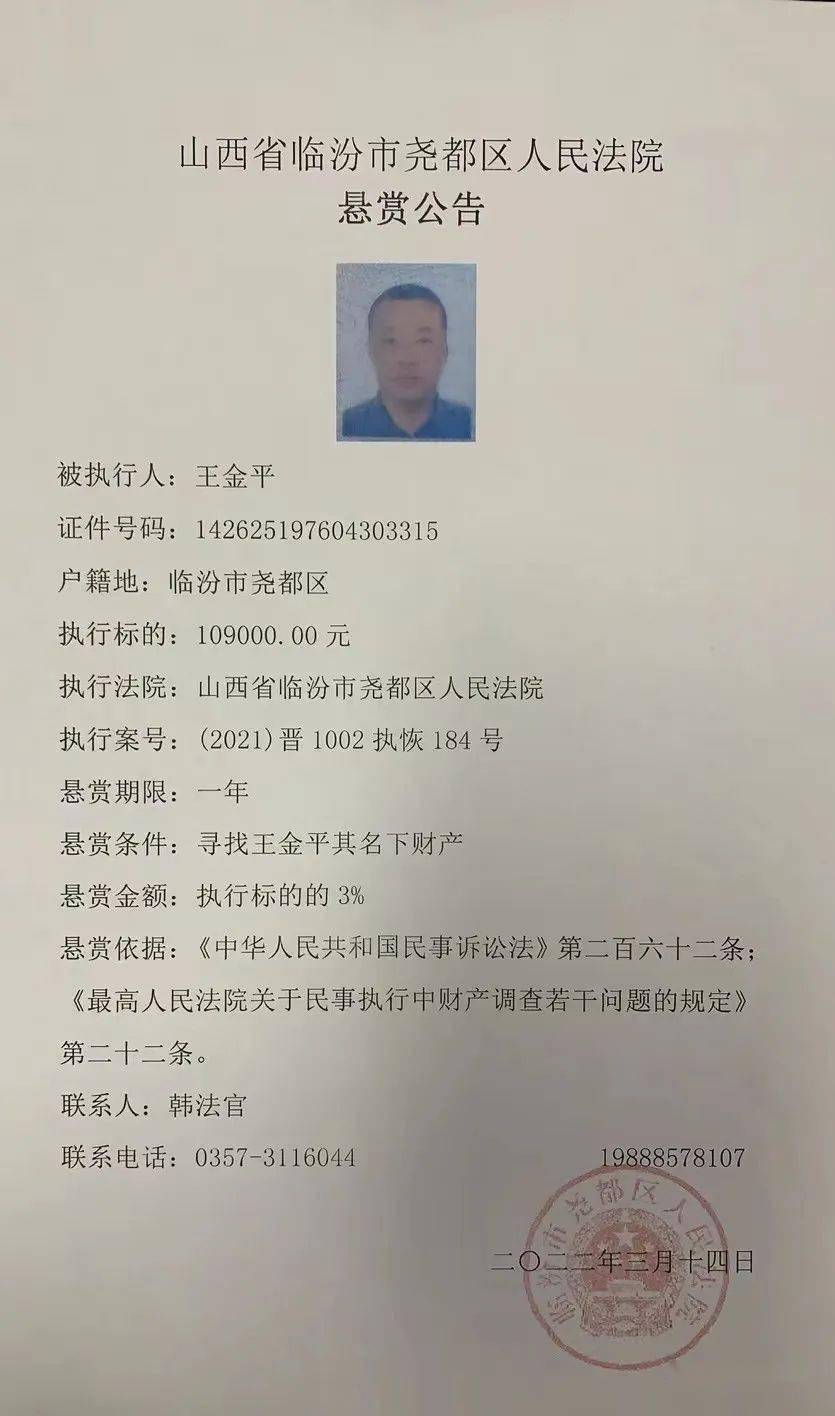 山西省临汾市尧都区人民法院
悬赏公告
被执行人：王金平
证件号码：142625197604303315
户籍地：临汾市尧都区
执行标的：109000.00 元
执行法院：山西省临汾市尧都区人民法院
执行案号：(2021)晋 1002 执恢 184 号
悬赏期限：一年
悬赏条件：寻找王金平其名下财产
悬赏金额：执行标的的 3%
悬赏依据：《中华人民共和国民事诉讼法》第二百六十二条；
《最高人民法院关于民事执行中财产调查若干问题的规定》
第二十二条。
联系人：韩法官
联系电话：0357-3116044 19888578107
二〇二二年三月十四日
临汾市尧都区人民法院